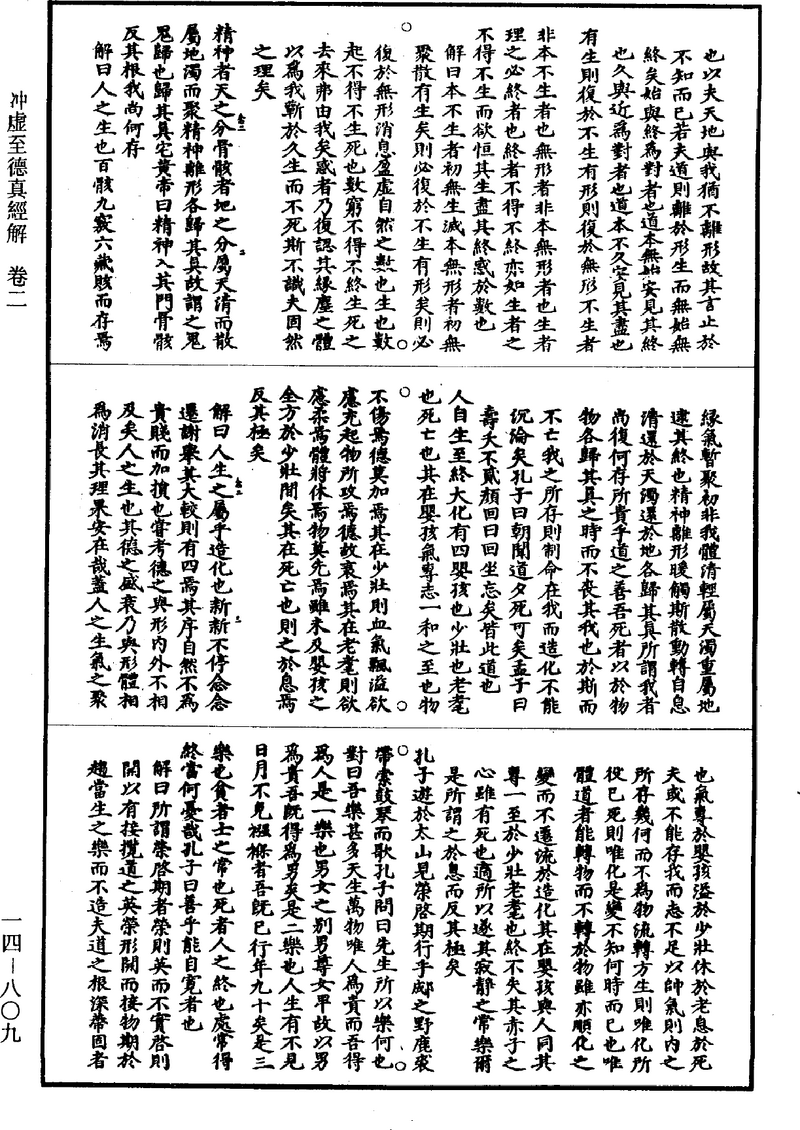 冲虛至德真經解 卷二
一四-八〇九
也以夫天地與我猶不離形故其言止於
不知而已若夫道則離於形生而無始無
終矣始與終為對者也道本無始安見其終
也久與近為對者也道本不久安見其盡也
有生則復於不生有形則復於無形不生者
非本不生者也無形者非本無形者也生者
理之必終者也終者不得不終亦如生者之
不得不生而欲恒其生盡其終惑於數也
解曰本不生者初無生滅本無形者初無
聚散有生矣則必復於不生有形矣則必
復於無形消息盈虛自然之數也生也數
起不得不生死也數窮不得不終生死之
去來弗由我矣惑者乃復認其緣塵之體
以為我蘄於久生而不死斯不識夫固然
之理矣
精神者天之分骨骸者地之分屬天清而散
屬地濁而聚精神離形各歸其真故謂之鬼
鬼歸也歸其真宅黃帝曰精神入其門骨骸
反其根我尚何存
解曰人之生也百骸九竅六藏賅而存焉
緣氣暫聚初非我體清輕屬天濁重屬地
逮其終也精神離形暖觸斯散動轉自息
清還於天濁還於地各歸其真所謂我者
尚復何存所貴乎道之善吾死者以於物
物各歸其真之時而不喪其我也於斯而
不亡我之所存則制命在我而造化不能
沉淪矣孔子曰朝聞道夕死可矣孟子曰
壽夭不貳顏回曰回坐忘矣皆此道也
人自生至終大化有四嬰孩也少壯也老耄
也死亡也其在嬰孩氣專志一和之至也物
不傷焉德莫加焉其在少壯則血氣飄溢欲
慮充起物所攻焉德故衰焉其在老耄則欲
慮柔焉體將休焉物莫先焉雖未及嬰孩之
全方於少壯間矣其在死亡也則之於息焉
反其極矣
解曰人生之屬乎造化也新新不停念念
還謝舉其大較則有四焉其序自然不為
貴賤而加損也嘗考德之與形內外不相
及矣人之生也其德之盛衰乃與形體相
為消長其理果安在哉蓋人之生氣之聚
也氣專於嬰孩溢於少壯休於老息於死
夫或不能存我而志不足以帥氣則內之
所存幾何而不為物流轉方生則唯化所
役已死則唯化是變不知何時而已也唯
體道者能轉物而不轉於物雖亦順化之
變而不還流於造化其在嬰孩與人同其
專一至於少壯老耄也終不失其赤子之
心雖有死也適所以遂其寂靜之常樂爾
是所謂之於息而反其極矣
孔子遊於太山見榮啓期行乎郕之野鹿裘
帶索鼓琴而歌孔子問曰先生所以樂何也
對曰吾樂甚多天生萬物唯人為貴而吾得
為人是一樂也男女之別男尊女卑故以男
為貴吾既得為男矣是二樂也人生有不見
日月不免襁褓者吾既已行年九十矣是三
樂也貧者士之常也死者人之終也處常得
終當何憂哉孔子曰善乎能自寬者也
解曰所謂榮啓期者榮則英而不實啓則
開以有接攬道之英榮形開而接物期於
趨當生之樂而不造夫道之根深蔕固者